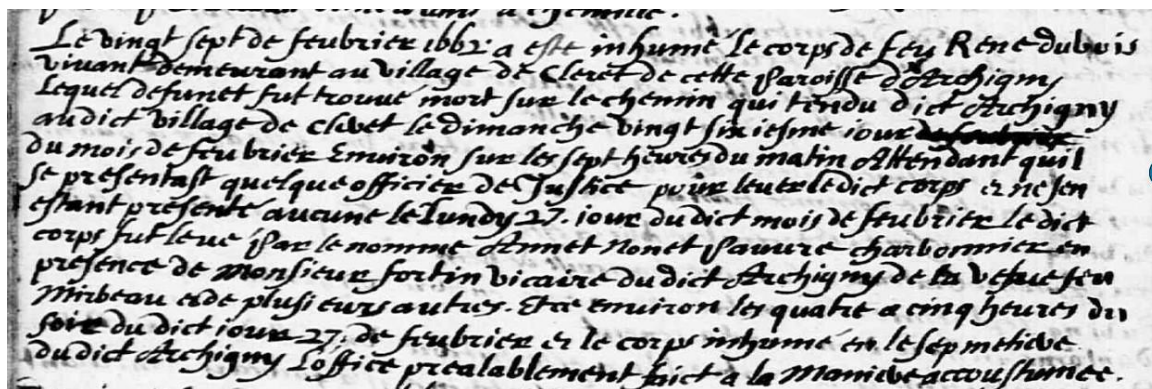 Le vingt sept de feubrier 1662 a esté inhumé le corps de feu René dubois
vivant demeurant au village de Cleret de cette Paroisse d'Archigny
Lequel defunct fut trouvé mort sur le chemin qui tend du dict Archigny
audict village de Clivet le dimanche vingt sixiesme iour
du mois de feubrier Environ sur les sept heures du matin Attendant quil
se presentast quelque officier de Justice pour lever ledict corps et ne sen
estant presenté aucune le lundy 27. iour dudict mois de feubrier le dict
corps fut levé Par le nommé Annet Nonet Pauvre charbonnier en
presence de Monsieur fortin vicaire dudict Archigny de la vefve feu
Mirbeau et de plusieurs autres. Et ce environ les quatre a cinq heures du
soir du dict iour 27. de feubrier et le corps inhumé en le
dudict Archigny L'office prealablement faict a la Maniere accoustumee.